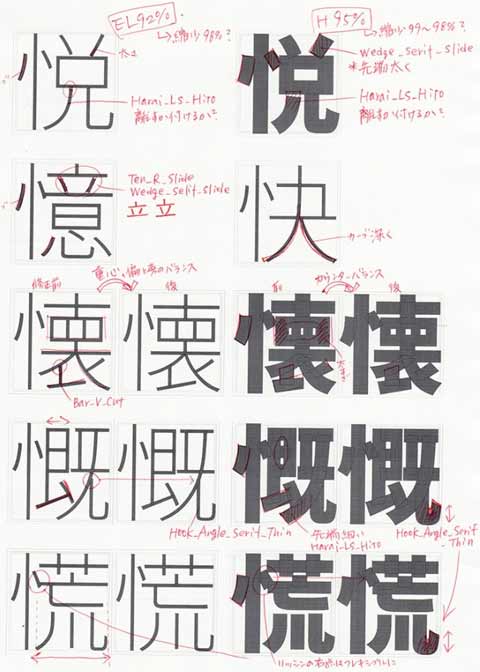 EL92%
H 95%
→縮少98%?
→縮少99~98%?
悦
太さ
悦
Wedge_Serif_Slide
*先端太く
Harai_LS_Hito
離れ(か)付けるか?
Harai_LS_Hito
離れ(か)付けるか?
憶
Ten_R_Slide
Wedge_Serif_Slide
立立
快
カーブ深く
重心・偏と旁のバランス
カウンターバランス
修正前
後
前
後
懐
懐
懐
懐
Bar_V_Cut
慨
慨
慨
慨
Hook_Angle_Serif_Thin
先端細い
Harai_LS_Hito
Hook_Angle_Serif
_Thin
慌
慌
慌
慌
リッシンの右点はフレキシブルに